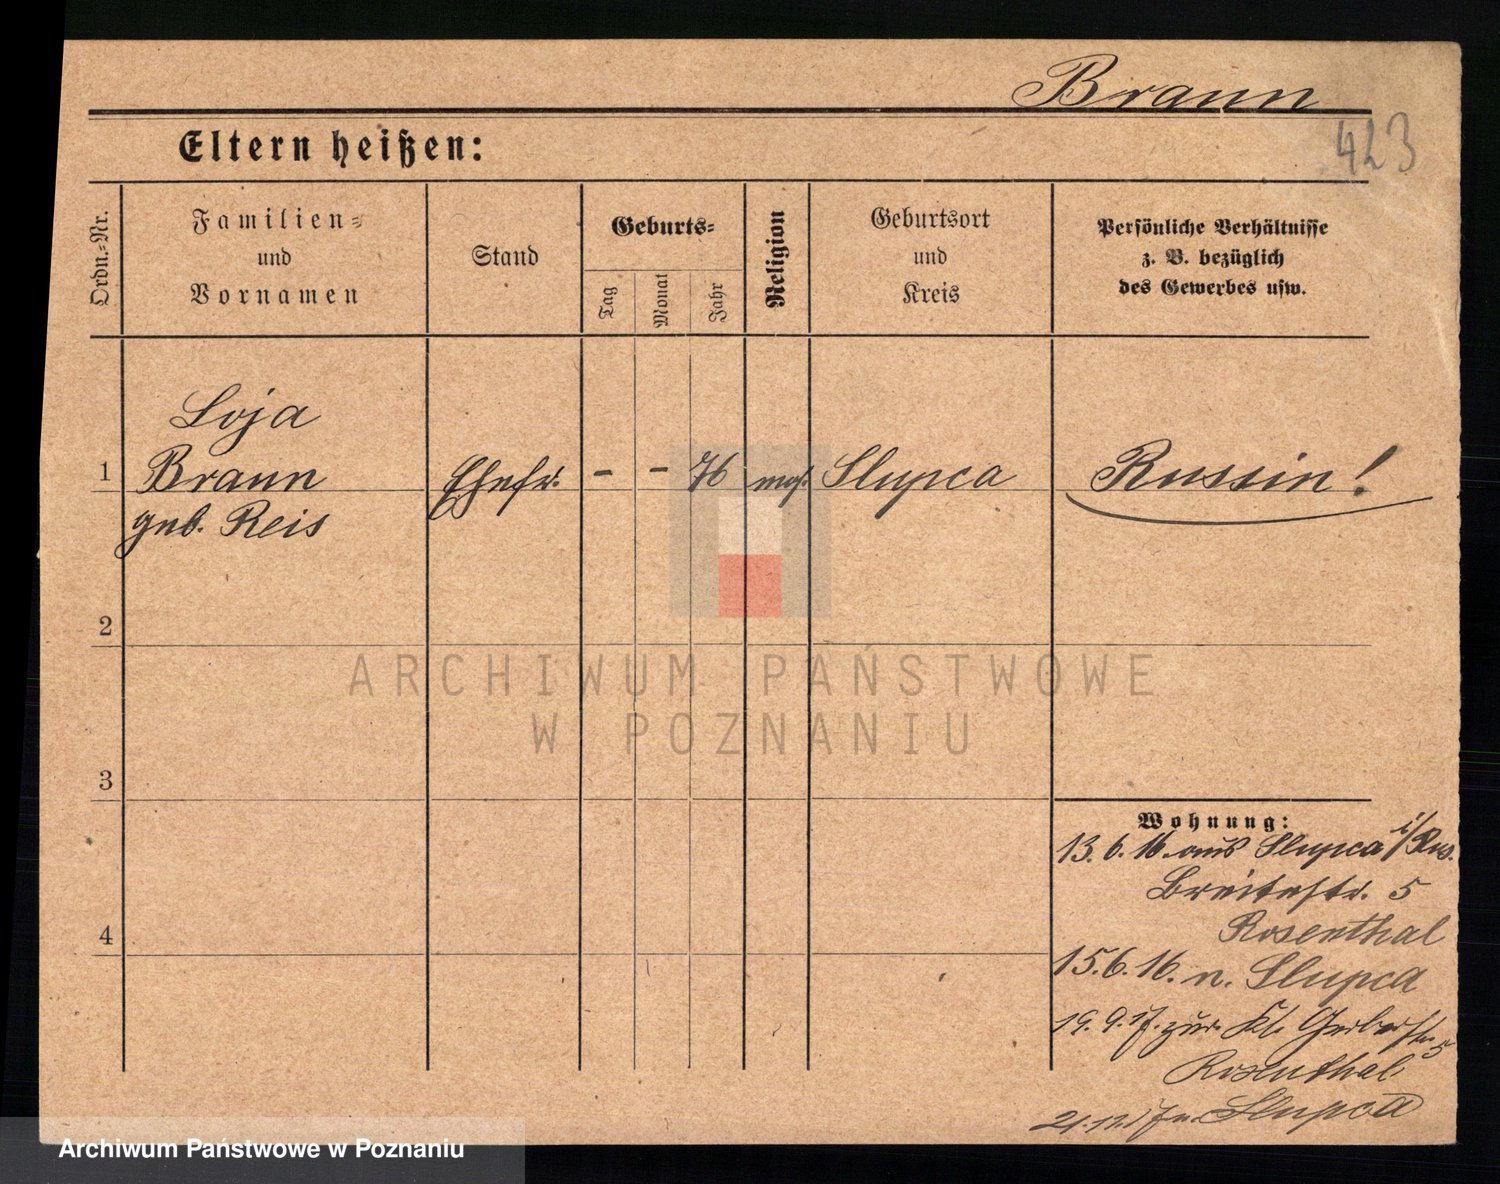 Braun
423
Eltern heißen:
Ordn.=Nr.
Familien=
und
Vornamen
Stand
Geburts=
Tag
Monat
Jahr
Religion
Geburtsort
und
Kreis
Persönliche Verhältnisse
z. B. bezüglich
des Gewerbes usw.
Loja
1 Braun Ehefr. - - 76 mos. Slupca Russin!
geb. Reis
2
ARCHIWUM PAŃSTWOWE
W POZNANIU
3
Wohnung:
13.6.16. aus Slupca i/Rus.
Breitestr. 5
Rosenthal
4
15.6.16. n. Slupca
19.9.17. zur. Kl. Gerberstr. 5
Rosenthal
Slupca
Archiwum Państwowe w Poznaniu